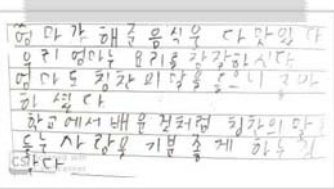 엄마가 해준 음식은 다 맛있다
우리 엄마는 요리를 참 잘하신다
엄마도 칭찬의 말을
하셨다
학교에서 배운 것처럼 칭찬의 말
사람을 기분 좋게 하는 것
CS